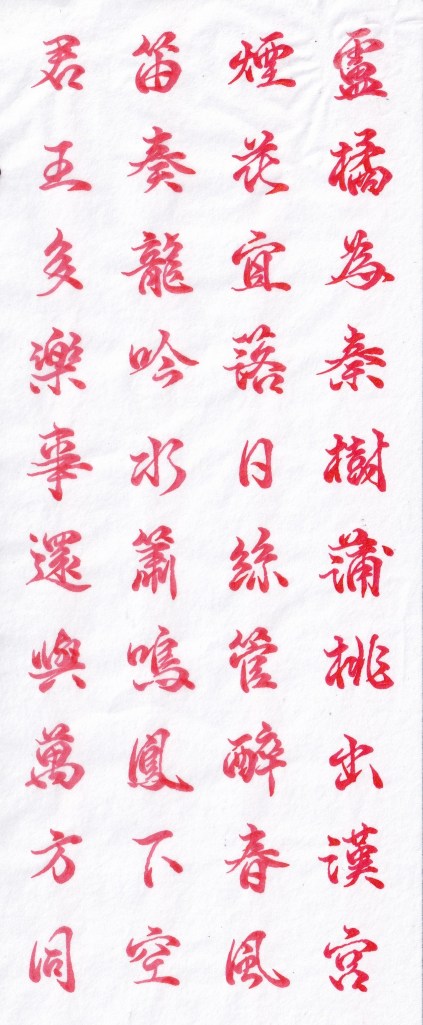 盧橘為秦樹蒲桃出漢宮
煙花宜落日絲管醉春風
笛奏龍吟水簫鳴鳳下空
君王多樂事還與萬方同